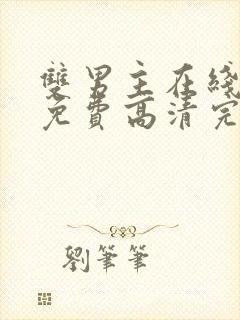 雙男主在綫
免費高清完
劉筆筆